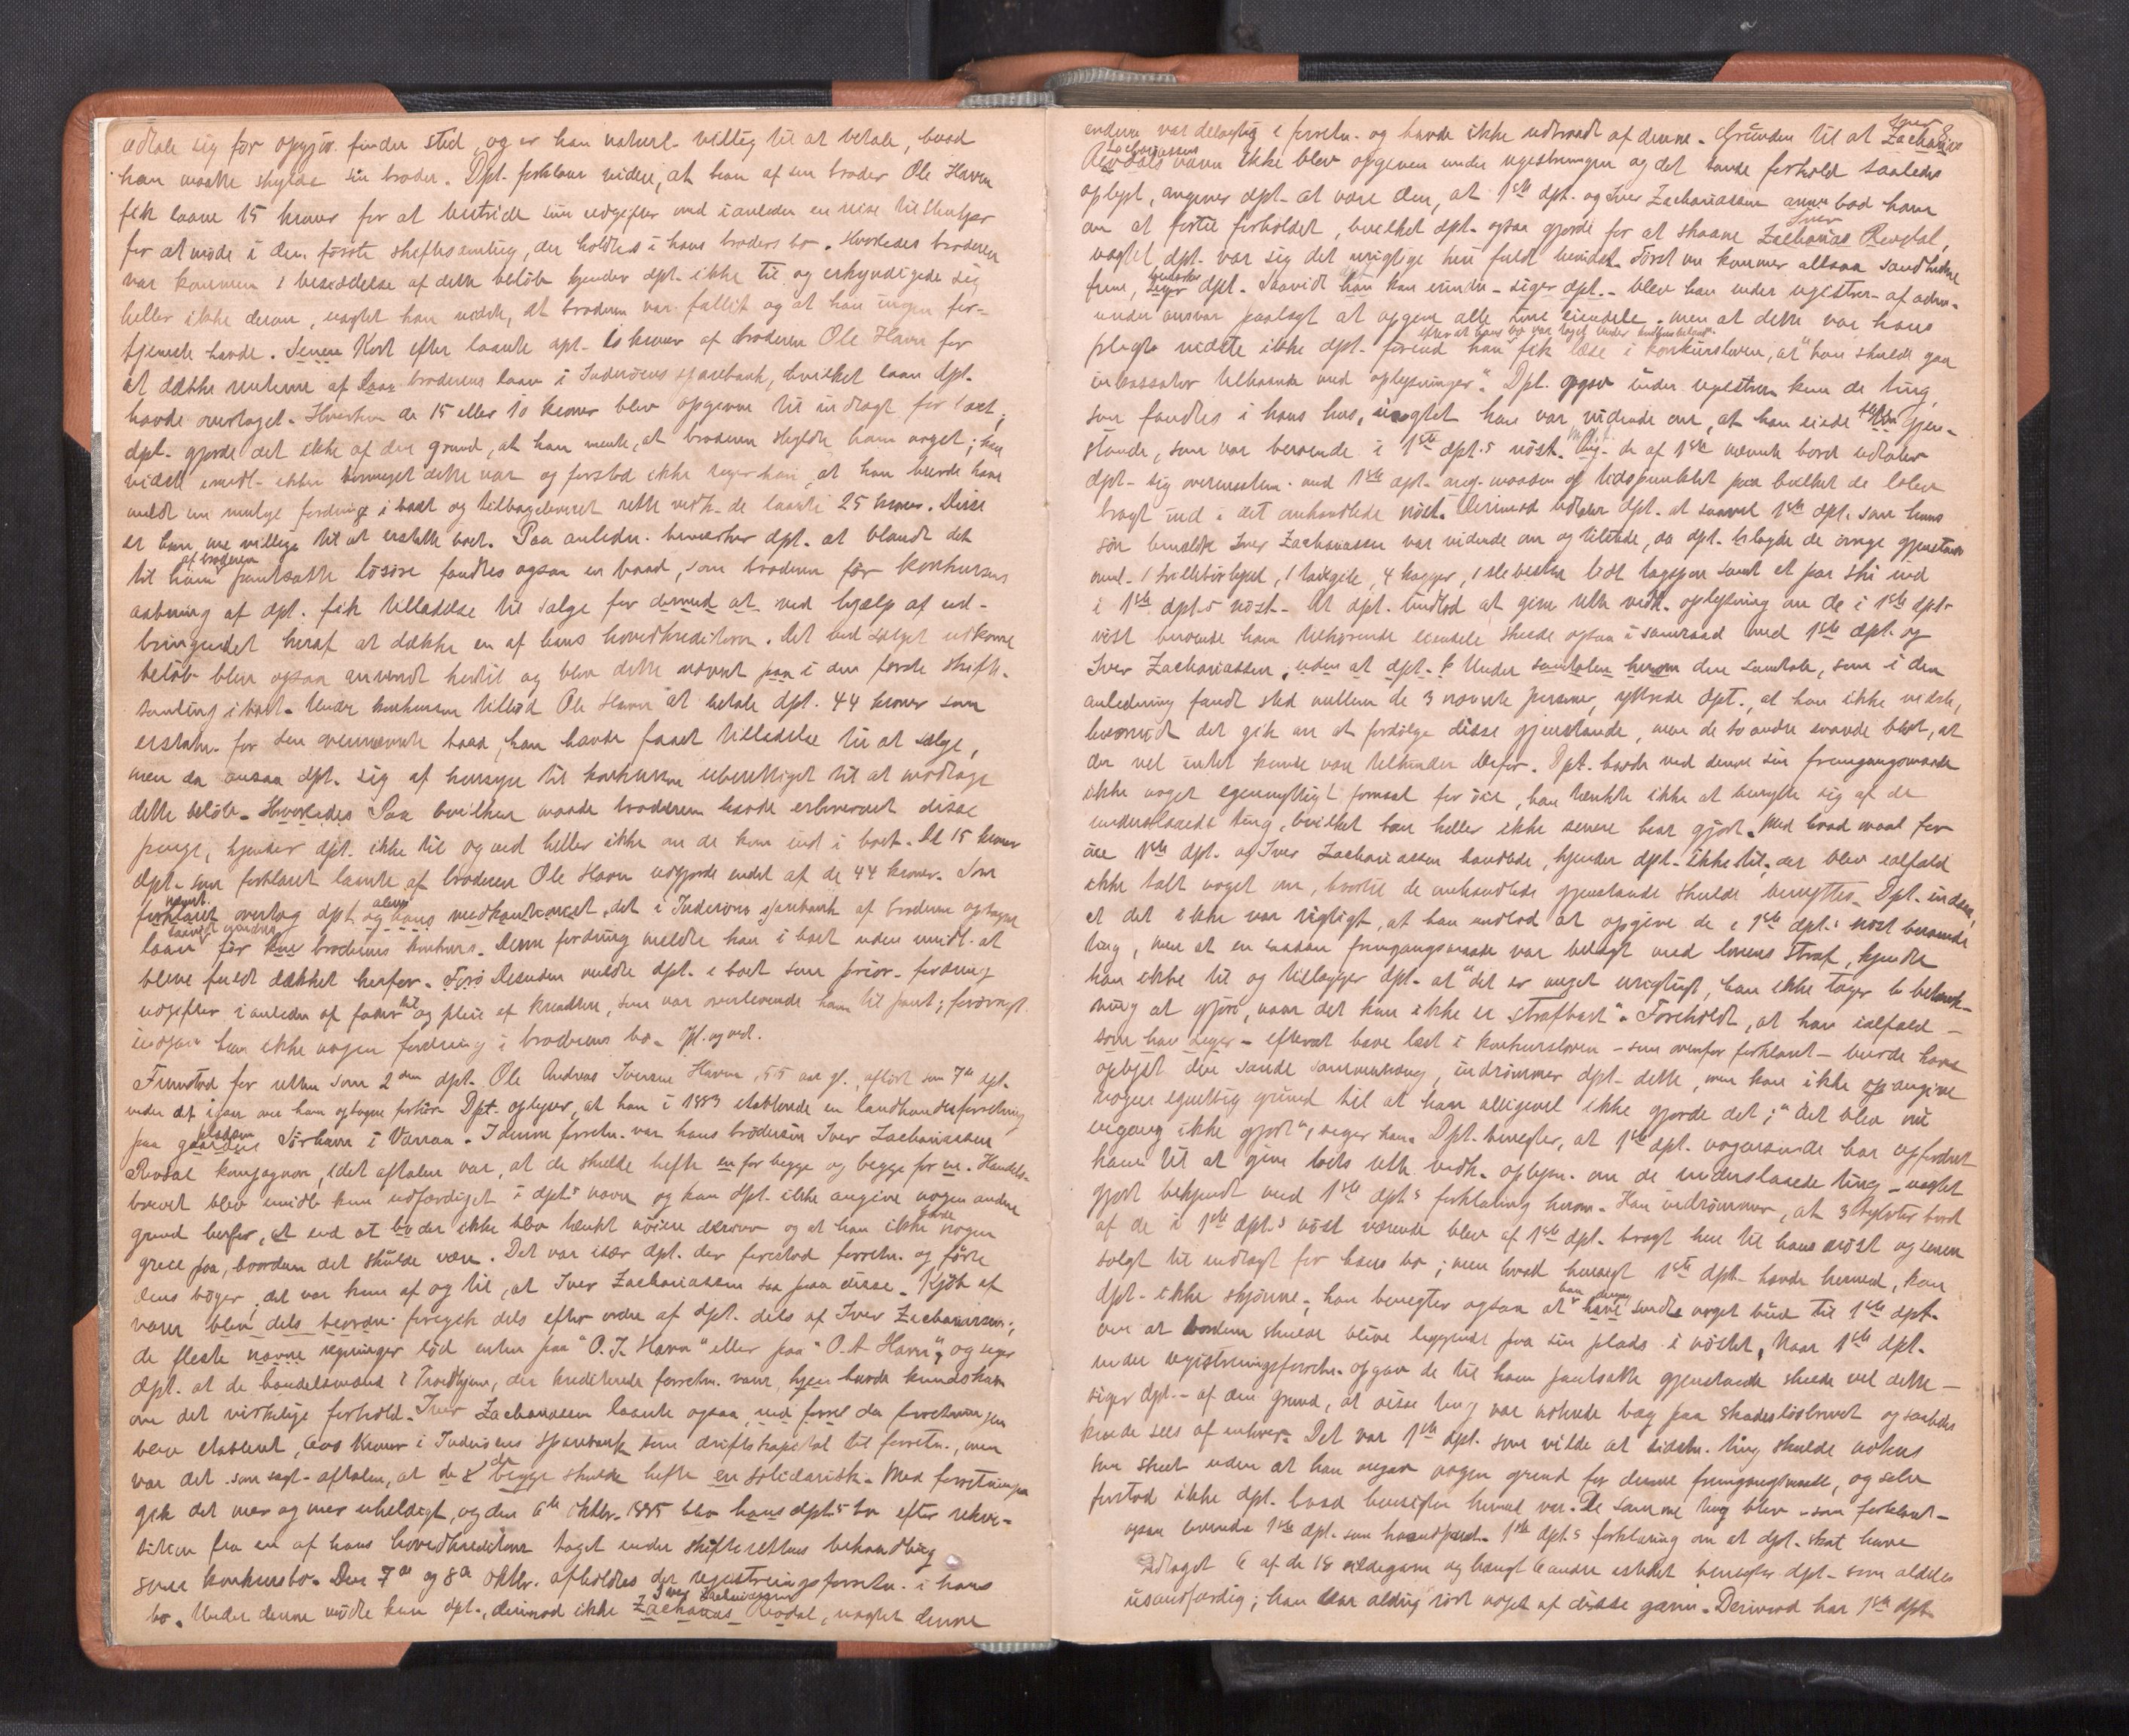 udtale sig før opgjør finder sted, og er han naturl. villig til at betale, hvad
han maatte skylde sin broder. Dpt. forklarer videre, at han af sin broder Ole Havn
fik laane 15 kroner for at bestride sine udgifter ved i anledn. en reise til
for at møde i den første skiftesamling, der holdtes i hans broders bo. Hvorledes broderen
var kommen i besiddelse af dette beløb kjender dpt. ikke til og erkyndigede sig
heller ikke derom, uagtet han vidste, at broderen var fallit og at han ingen for-
tjeneste havde. Senere Kort efter laante dpt. 10 kroner af broderen Ole Havn for
at dække renterne af Laan broderens laan i Inderøens sparebank, hvilket laan dpt.
havde overtaget. Hverken de 15 eller 10 kroner blev opgivne til indtægt for boet;
dpt. gjorde det ikke af den grund, at han mente, at broderen skyldte ham noget; han
vidste imidl. ikke hvormeget dette var og forstod ikke siger han, at han burde have
meldt sin mulige fordring i boet og tilbageleveret rette vedk. de laante 25 kroner. Disse
er han nu villig til at erstatte boet. Paa anledn. bemærker dpt. at blandt det
til ham af broderen pantsatte løsøre fandtes ogsaa en baad, som broderen før konkursens
aabning af dpt. fik tilladelse til sælge for dermed at ved hjælp af ud-
bringendet heraf at dække en af hans hovedkreditorer. Det ved salget udkomne
beløb blev ogsaa anvendt hertil og blev dette nævnt paa i den første skifte-
samling i boet. Under konkursen tilbød Ole Havn at betale dpt. 44 kroner som
erstatn. for den ovennævnte baad, han havde faaet tilladelse til at sælge,
men da ansaa dpt. sig af hensyn til konkursen uberettiget til at modtage
dette beløb. Hvorledes Paa hvilken maade broderen havde erhvervet disse
penge, kjender dpt. ikke til og ved heller ikke om de kom ind i boet. De 15 kroner
dpt. som forklaret laante af broderen Ole Havn udgjorde endel af de 44 kroner. Som
forklaret nævnt overtog dpt. og hans medkautionist, det i Inderøens sparebank af broderen optagne
laan før hans broderens konkurs. Denne fordring meldte han i boet uden imidl. at
blive fuldt dækket herfor. Desuden meldte dpt. i boet som prior. fordring
udgifter i anledn. af foder til og pleie af kreaturer, som var overleverede ham til pant; forøvrigt
indgav han ikke nogen fordring i broderens bo. Opl. og ved.
Fremstod for retten som 2den dpt. Ole Andreas Iversen Havn, 55 aar gl., afhørt som 7de dpt.
under det igaar over ham optagne forhør. Dpt. oplyser, at han i 1883 etablerede en landhandelsforretning
paa gaarden pladsen Sørhavn i Værran. I denne forretn. var hans brodersøn Iver Zachariassen
Revdal kompagnon, idet aftalen var, at de skulde hefte en for begge og begge for en. Handels-
brevet blev imidl. kun udfærdiget i dpt.s navn og kan dpt. ikke angive nogen anden
grund herfor, at end at han der ikke blev tænkt nøiere derover og at han ikke havde nogen
greie paa, hvordan det skulde være. Det var især dpt. der forestod forretn. og førte
dens bøger; det var kun af og til, at Iver Zachariassen saa paa disse. Kjøb af
varer blev dels besørg. foregik dels efter ordre af dpt. dels af Iver Zachariassen;
de fleste navne regninger lød enten paa "O. I. Havn" eller paa "O. A. Havn", og siger
dpt. at de handelsmænd i Trondhjem, der krediterede forretn. varer, kjen havde kundskab
om det virkelige forhold. Iver Zachariassen laante ogsaa, ved forret da forretningen
blev etableret, 600 Kroner i Inderøens Sparebank som driftskapital til forretn., men
var det som sagt aftalen, at de 2 begge skulde hefte en solidarisk. Med forretningen
gik det mer og mer uheldigt, og den 6te Oktbr. 1885 blev hans dpt.s bo efter rekvi-
sition fra en af hans hovedkreditorer taget under skifterettens behandling
som konkursbo. Den 7de og 8de Oktbr. afholdtes der registreringsforretn. i hans
bo. Under denne mødte kun dpt., derimod ikke Zacharias Iver Zachariassen Revdal, uagtet denne
endnu var delagtig i forretn. og havde ikke udtraadt af denne. Grunden til at Zacharias Iver
Revdals Zachariassens navn ikke blev opgiven under registreringen og det sande forhold saaledes
oplyst, angiver dpt. at være den, at 1ste dpt. og Iver Zachariassen bad ham
om at fortie forholdet, hvilket dpt. ogsaa gjorde for at skaane Zacharias Iver Revdal,
uagtet dpt. var sig det urigtige heri fuldt bevidst. Først nu kommer altsaa sandheden
frem, siger bemærker dpt. Saavidt han kan erindre - siger dpt. - blev han under registrer. af adm.
under ansvar paalagt at opgive alle sine eiendele - men at dette var hans
pligt vidste ikke dpt. førend han efter at hans bo var taget under konkursbehandl. fik læse i konkursloven, at "han skulde gaa
inkassator tilhaande med oplysninger". Dpt. opgav under registrer. kun de ting,
som fandtes i hans hus, uagtet han var vidende om, at han eiede gjen-
stande, som var beroende i 1ste dpt.s nøst. Ang. de af 1ste nævnte bord udtaler
dpt. sig overensstem. med 1ste dpt. ang. maaden og tidspunktet paa hvilket de blev
bragt ind i det omhandlede nøst. Derimod udtaler dpt. at saavel 1ste dpt. som hans
søn bemeldte Iver Zachariassen var vidende om og tilstede, da dpt. bragte de øvrige gjenstande
4 kagger, lidt tagspon samt et par ski ind
i 1ste dpt.s nøst. At dpt. undlod at give rette vedk. oplysning om de i 1ste dpt.s
nøst beroende ham tilhørende eiendele skede ogsaa i samraad med 1ste dpt. og
Iver Zachariassen, uden at dpt. Under samtalen herom den samtale, som i den
anledning fandt sted mellem de 3 nævnte personer, ytrede dpt., at han ikke vidste,
hvorvidt det gik an at fordølge disse gjenstande, men de to andre svarede blot, at
der vel intet kunde være tilhinder derfor. Dpt. havde ved denne sin fremgangsmaade
ikke noget egennyttigt formaal for øie, han tænkte ikke at benytte sig af de
underslaaede ting, hvilket han heller ikke senere har gjort. Med hvad maal for
øie 1ste dpt. og Iver Zachariassen handlede, kjender dpt. ikke til; der blev ialfald
ikke talt noget om, hvortil de omhandlede gjenstande skulde benyttes. Dpt. indser,
at det ikke var rigtigt, at han undlod at opgive de i 1ste dpt.s nøst beroende
ting, men at en saadan fremgangsmaade var belagt med lovens straf, kjendte
han ikke til og tillægger dpt. at "det er meget urigtigt, han ikke tager i betænk-
ning at gjøre, naar det kun ikke er strafbart". Foreholdt, at han ialfald -
som han siger - efterat have læst i konkursloven - som ovenfor forklaret - burde have
oplyst den sande sammenhæng, indrømmer dpt. dette, men kan ikke op angive
nogen egentlig grund til at han alligevel ikke gjorde det; "det blev nu
engang ikke gjort", siger han. Dpt. benegter, at 1ste dpt. nogensinde har opfordret
ham til at give boets rette vedk. oplysn. om de underslaaede ting - uagtet
gjort bekjendt med 1ste dpt.s forklaring herom. Han indrømmer, at 3 tylvter bord
af de i 1ste dpt.s nøst værende blev af 1ste dpt. bragt hen til hans nøst og senere
solgt til indtægt for hans bo; men hvad hensigt 1ste dpt. havde hermed, kan
dpt. ikke skjønne; han benegter ogsaa at have sendt noget bud til 1ste dpt.
om at bordene skulde blive liggende paa sin plads i nøstet. Naar 1ste dpt.
under registreringsforretn. opgav de til ham pantsatte gjenstande skede vel dette -
siger dpt. - af den grund, at disse ting var noterede bag paa skadesløsbrevet og saaledes
kunde sees af enhver. Det var 1ste dpt. som vilde at sidstn. ting skulde noteres
som skeet uden at han angav nogen grund for denne fremgangsmaade, og selv
forstod ikke dpt. hvad hensigten hermed var. De samme ting blev - som forklaret -
ogsaa leverede 1ste dpt. som haandpant. 1ste dpt.s forklaring om at dpt. skal have
udtaget 6 af de 18 sildegarn og hængt 6 andre istedet benegter dpt. som aldeles
usandfærdig; han har aldrig rørt noget af disse garn. Derimod har 1ste dpt.